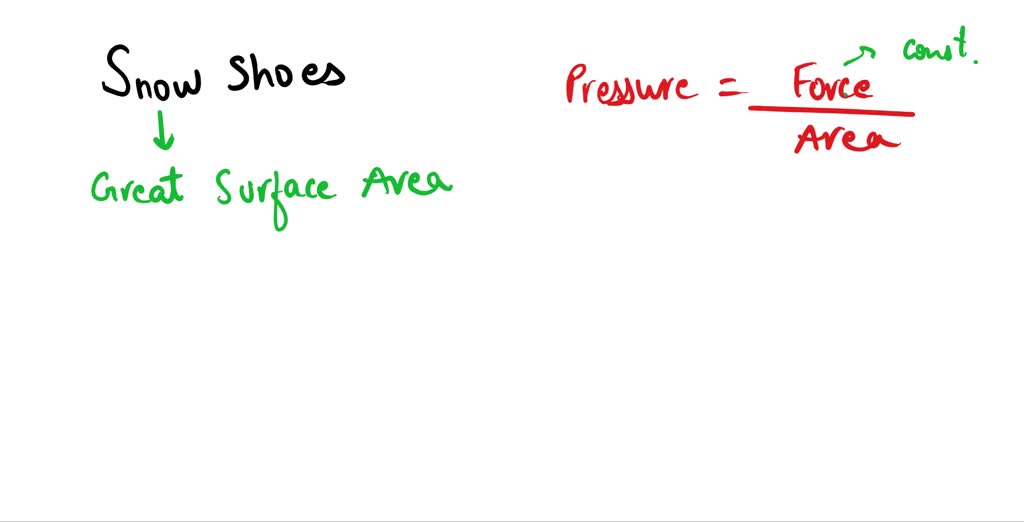 Snow Shoes
Great Surface Area
Pressure = Force
Area
const.